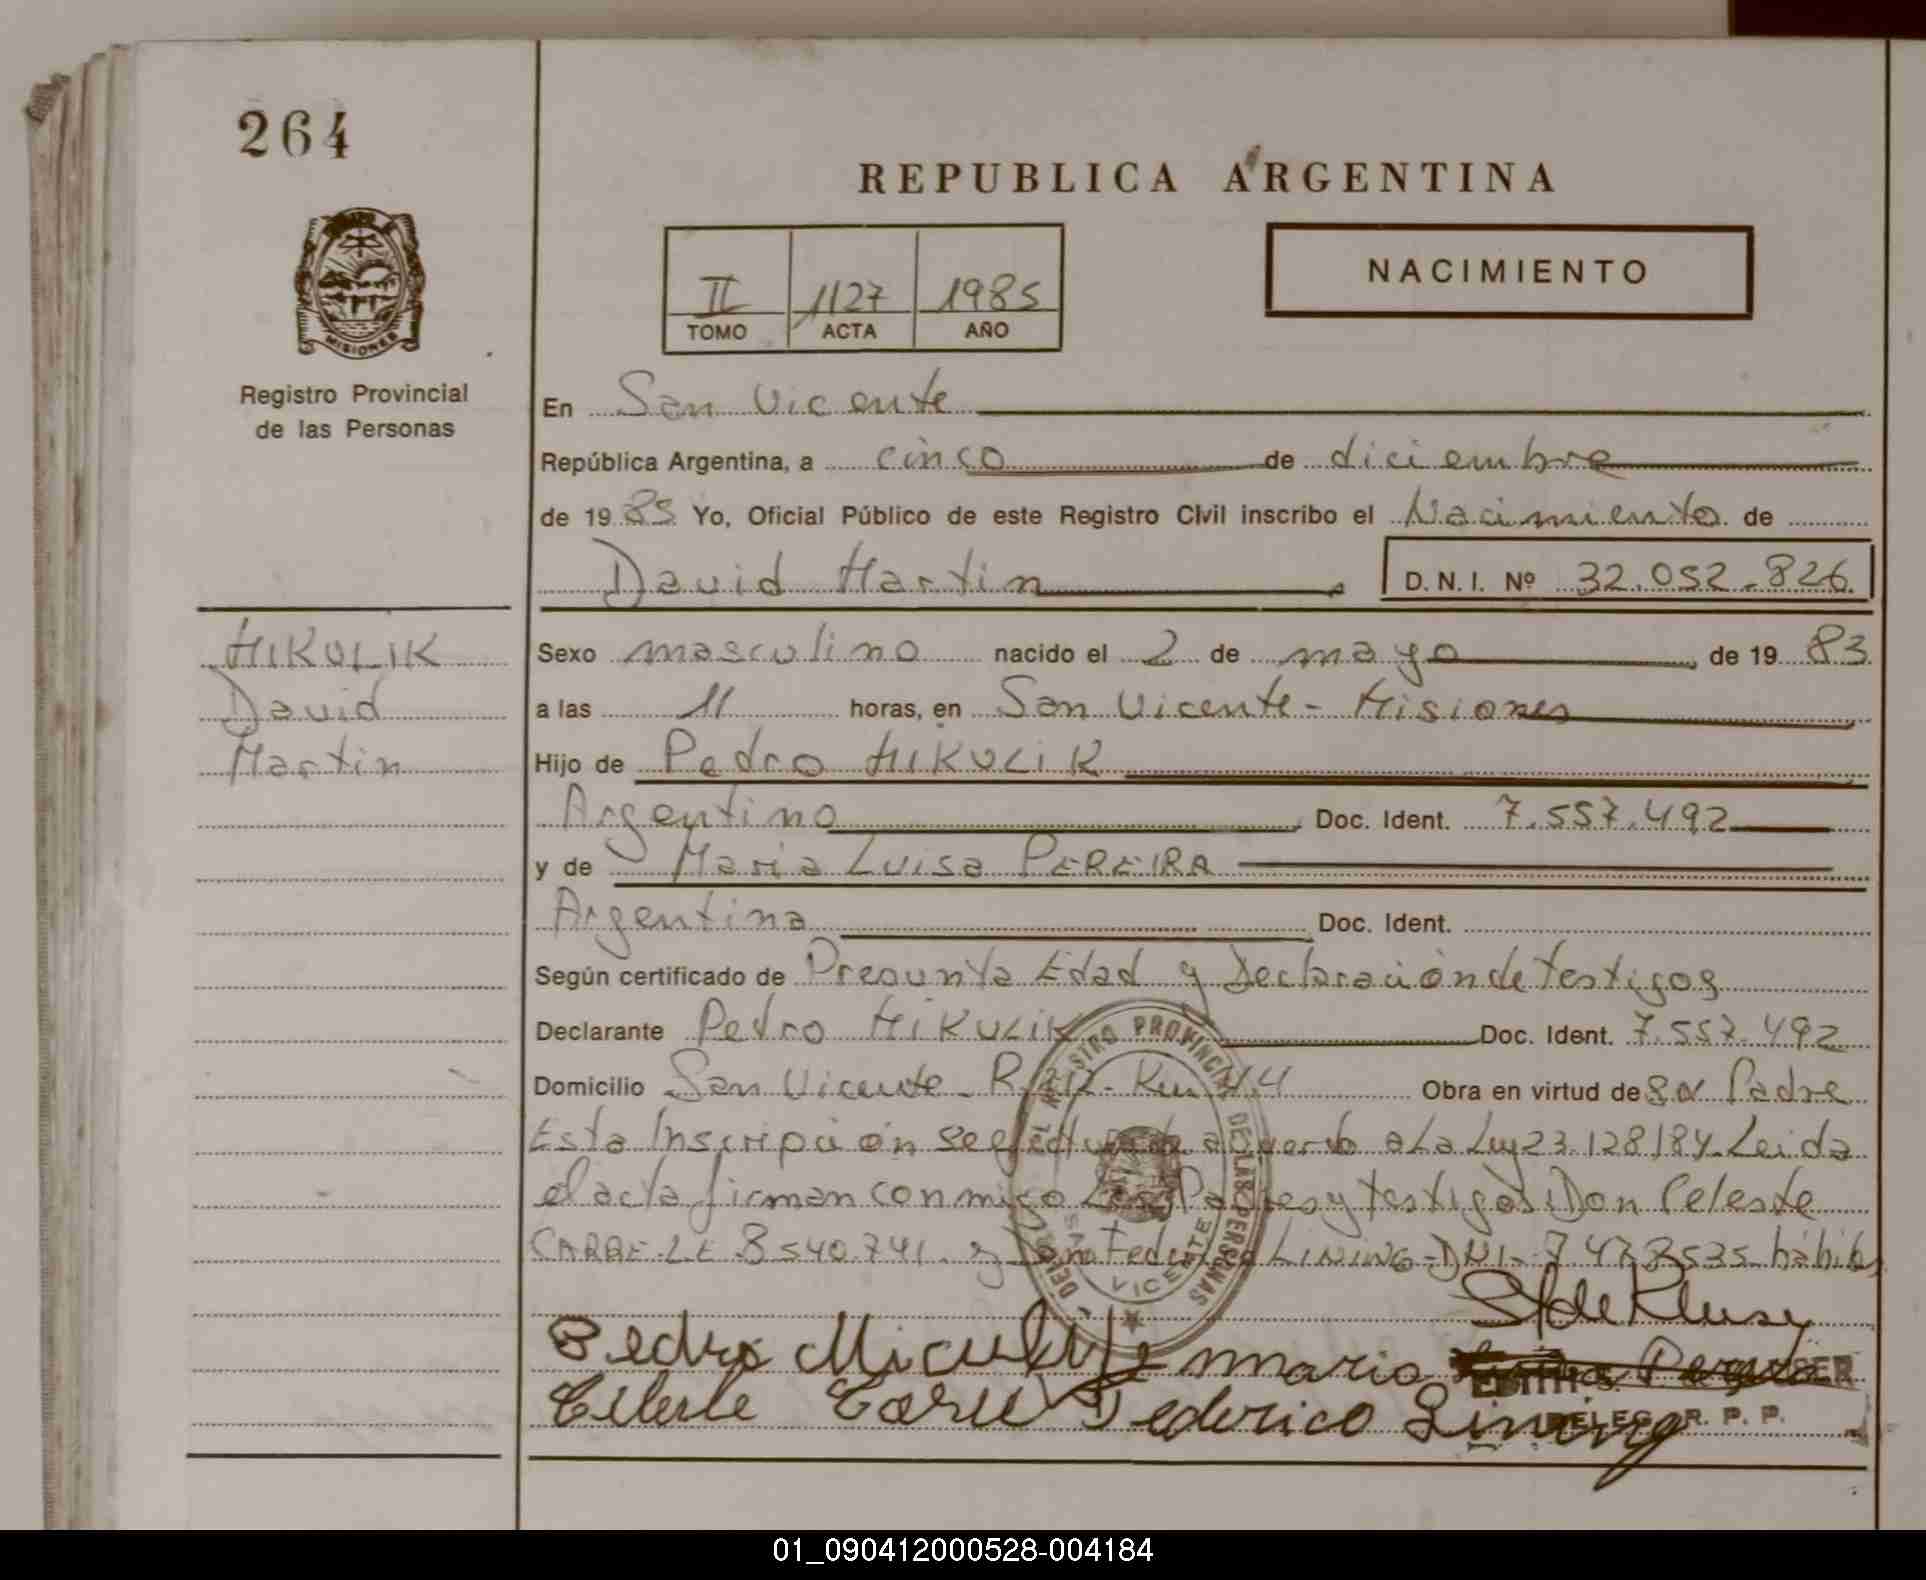 264
REPUBLICA ARGENTINA
NACIMIENTO
II 1127 1985
TOMO ACTA AÑO
MISIONES
Registro Provincial
de las Personas
En San Vicente
República Argentina, a cinco de diciembre
de 1985 Yo, Oficial Público de este Registro Civil inscribo el Nacimiento de
David Martin D.N.I. Nº 32.052.826
MIKULIK
David
Martin
Sexo masculino nacido el 2 de mayo de 1983
a las 11 horas, en San Vicente - Misiones
Hijo de Pedro MIKULIK
Argentino Doc. Ident. 7.557.492
y de Maria Luisa PEREIRA
Argentina Doc. Ident.
Según certificado de Presunta Edad y Declaración de Testigos
Declarante Pedro MIKULIK Doc. Ident. 7.557.492
Domicilio San Vicente - R. 212 - Km Obra en virtud de su Padre
Esta Inscripción se efectua de acuerdo a La Ley 23.128/84. Leida
el acta firman conmigo Los Padres y testigos: Don Celeste
CARRE L.E 8540.741 y Federico LINING - DNI - hábiles
REGISTRO PROVINCIAL DE LAS PERSONAS
SAN VICENTE
Pedro Miculik maria
Celeste Federico Lining
DELEG. R. P. P.
01_090412000528-004184